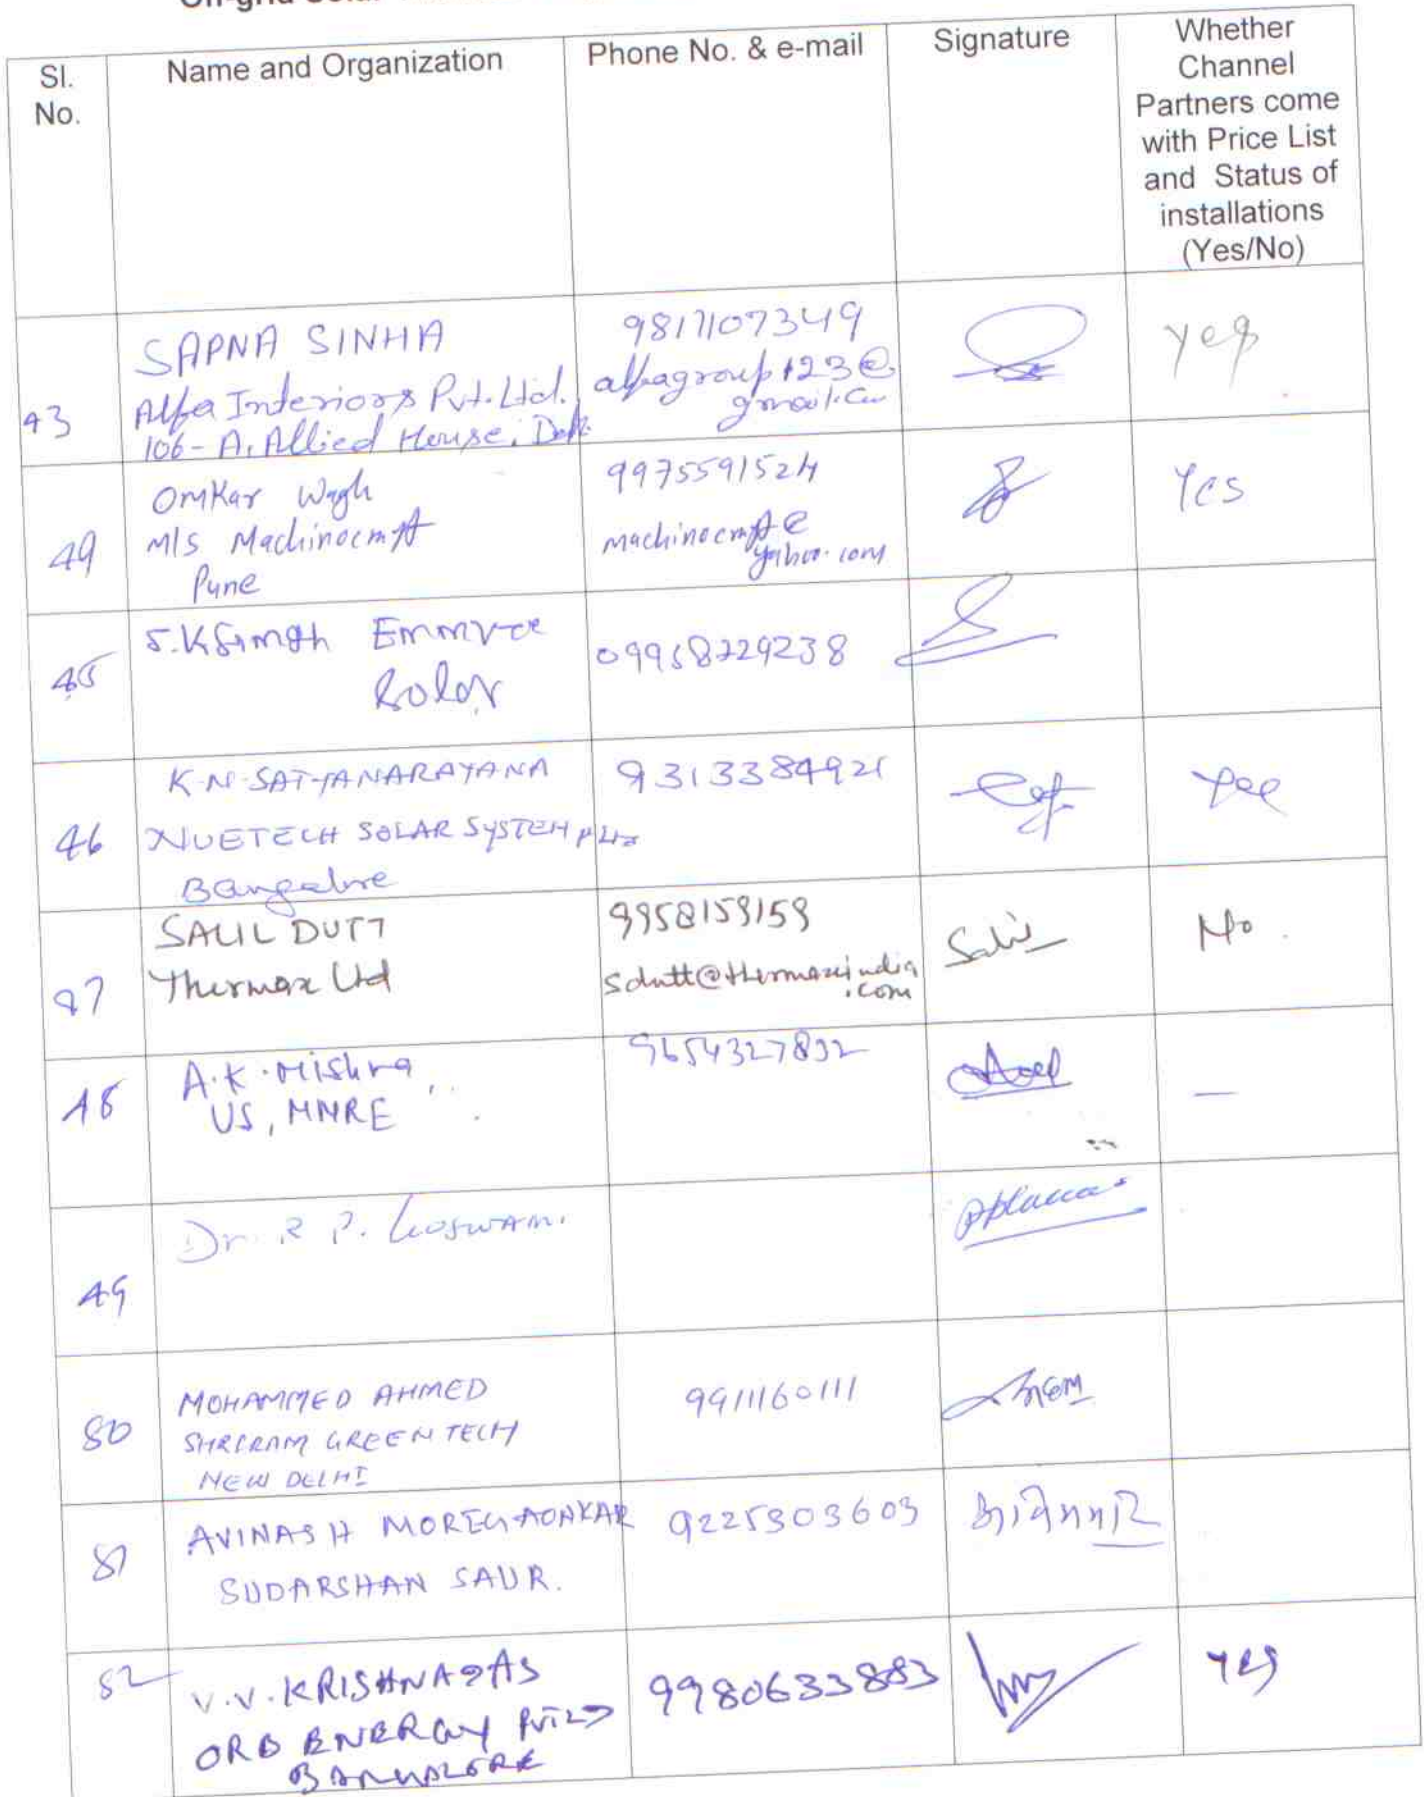 Sl.
No.
Name and Organization
Phone No. & e-mail
Signature
Whether
Channel
Partners come
with Price List
and Status of
installations
(Yes/No)
43
SAPNA SINHA
Alfa Interiors Pvt. Ltd.
106-A, Allied House, Delhi
9817107349
alfagroup123@
gmail.com
Yes
44
Omkar Wagh
M/s Machinocraft
Pune
9975591524
machinocraft@
yahoo.com
Yes
45
S.K Singh Emmvee
Solar
09958229238
46
K.N. SATYANARAYANA
NUETECH SOLAR SYSTEM P Ltd
Bangalore
9313384921
Yes
47
SALIL DUTT
Thermax Ltd
9958159159
sdutt@thermaxindia
.com
Salil
No.
48
A.K. Mishra
US, MNRE
9654327892
—
49
Dr. R P. Goswami
50
MOHAMMED AHMED
SHRIRAM GREEN TECH
NEW DELHI
9911160111
51
AVINASH MOREGAONKAR
SUDARSHAN SAUR.
9225303603
52
V.V. KRISHNADAS
ORB ENERGY PVT LTD
BANGALORE
9980633883
Yes